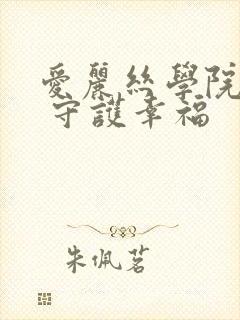 愛麗絲學院
守護幸福
朱佩茗